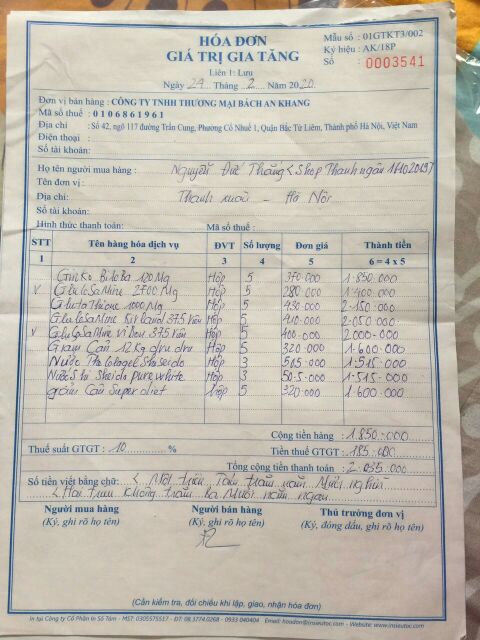 HÓA ĐƠN
GIÁ TRỊ GIA TĂNG
Liên 1: Lưu
Ngày 24 Tháng 2 Năm 2020
Mẫu số : 01GTKT3/002
Ký hiệu : AK/18P
Số : 0003541
Đơn vị bán hàng : CÔNG TY TNHH THƯƠNG MẠI BÁCH AN KHANG
Mã số thuế : 0106861961
Địa chỉ : Số 42, ngõ 117 đường Trần Cung, Phường Cổ Nhuế 1, Quận Bắc Từ Liêm, Thành phố Hà Nội, Việt Nam
Điện thoại :
Số tài khoản:
Họ tên người mua hàng : Nguyễn Đức Thắng (Shop Thanh ngân
Tên đơn vị :
Địa chỉ: Thanh xuân - Hà Nội
Số tài khoản:
Hình thức thanh toán: Mã số thuế :
STT Tên hàng hóa dịch vụ ĐVT Số lượng Đơn giá Thành tiền
1 2 3 4 5 6 = 4 x 5
GinKo Biloba 120 Mg Hộp 5 370.000 1.850.000
v GlucoSaMine 2700 Mg Hộp 5 280.000 1.400.000
GlutaThione 1000 Mg Hộp 5 430.000 2.150.000
GlucoSaMine Kirland 375 viên Hộp 5 410.000 2.050.000
v GluCoSaMine 375 viên Hộp 5 400.000 2.000.000
Giảm Cân 12Kg Hộp 5 320.000 1.600.000
Nước Hộp 3 505.000 1.515.000
Nước Sheido pure white Hộp 3 50.5.000 1.515.000
giảm Cân Super diet hộp 5 320.000 1.600.000
Cộng tiền hàng : 1.850.000
Thuế suất GTGT : 10 % Tiền thuế GTGT : 185.000
Tổng cộng tiền thanh toán : 2.035.000
Số tiền viết bằng chữ: ( Một triệu Tám trăm năm Mươi nghìn
( Hai triệu không trăm ba Mươi năm ngàn
Người mua hàng Người bán hàng Thủ trưởng đơn vị
(Ký, ghi rõ họ tên) (Ký, ghi rõ họ tên) (Ký, đóng dấu, ghi rõ họ tên)
(Cần kiểm tra, đối chiếu khi lập, giao, nhận hóa đơn)
In tại Công ty Cổ Phần In Số Tám - MST: 0305575517 - ĐT: 08.3774.0268 - 0933 040404 Email: hoadon@insieutoc.com - Website: www.insieutoc.com